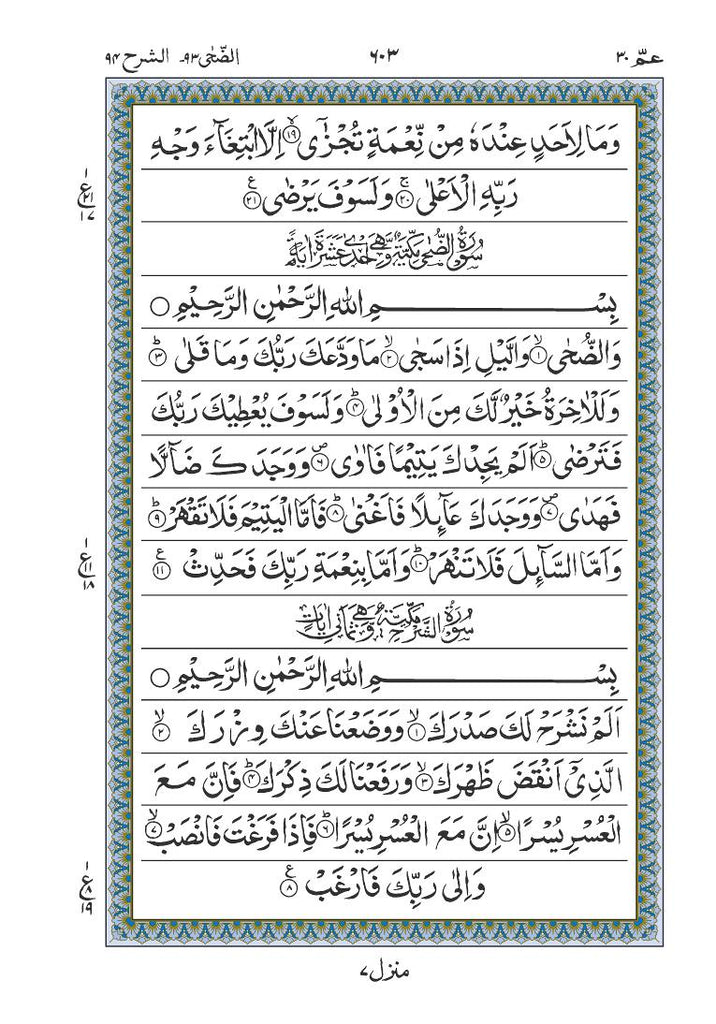 عمّ ٣٠ ٦٠٣ الضّحٰى ٩٣ـ الشرح ٩۴
وَمَا لِاَحَدٍ عِنْدَهٗ مِنْ نِّعْمَةٍ تُجْزٰٓى ۙ‏﴿۱۹﴾ اِلَّا ابْتِغَآءَ وَجْهِ
رَبِّهِ الْاَعْلٰى ۚ‏﴿۲۰﴾ وَلَسَوْفَ يَرْضٰى ﴿۲۱﴾
ع ٢١ ١٧
سُوْرَةُ الضُّحٰى مَكِّيَّةٌ وَّهِىَ اِحْدٰى عَشَرَةَ اٰيَةً
بِسْــــــــــمِ اللّٰهِ الرَّحْمٰنِ الرَّحِيْمِ ○
وَالضُّحٰى ۙ‏﴿۱﴾ وَالَّيْلِ اِذَا سَجٰى ۙ‏﴿۲﴾ مَا وَدَّعَكَ رَبُّكَ وَمَا قَلٰى ؕ‏﴿۳﴾
وَلَلْاٰخِرَةُ خَيْرٌ لَّكَ مِنَ الْاُوْلٰى ؕ‏﴿۴﴾ وَلَسَوْفَ يُعْطِيْكَ رَبُّكَ
فَتَرْضٰى ؕ‏﴿۵﴾ اَلَمْ يَجِدْكَ يَتِيْمًا فَاٰوٰى ۪‏﴿۶﴾ وَوَجَدَكَ ضَآلًّا
فَهَدٰى ۪‏﴿۷﴾ وَوَجَدَكَ عَآئِلًا فَاَغْنٰى ؕ‏﴿۸﴾ فَاَمَّا الْيَتِيْمَ فَلَا تَقْهَرْ ؕ‏﴿۹﴾
وَاَمَّا السَّآئِلَ فَلَا تَنْهَرْ ؕ‏﴿۱۰﴾ وَاَمَّا بِنِعْمَةِ رَبِّكَ فَحَدِّثْ ﴿۱۱﴾
ع ١١ ١٨
سُوْرَةُ الشَّرْحِ مَكِّيَّةٌ وَّهِىَ ثَمَانِىْ اٰيَاتٍ
بِسْــــــــــمِ اللّٰهِ الرَّحْمٰنِ الرَّحِيْمِ ○
اَلَمْ نَشْرَحْ لَكَ صَدْرَكَ ۙ‏﴿۱﴾ وَوَضَعْنَا عَنْكَ وِزْرَكَ ۙ‏﴿۲﴾
الَّذِىْۤ اَنْقَضَ ظَهْرَكَ ۙ‏﴿۳﴾ وَرَفَعْنَا لَكَ ذِكْرَكَ ؕ‏﴿۴﴾ فَاِنَّ مَعَ
الْعُسْرِ يُسْرًا ۙ‏﴿۵﴾ اِنَّ مَعَ الْعُسْرِ يُسْرًا ؕ‏﴿۶﴾ فَاِذَا فَرَغْتَ فَانْصَبْ ۙ‏﴿۷﴾
وَاِلٰى رَبِّكَ فَارْغَبْ ﴿۸﴾
ع ٨ ١٩
منزل ٧